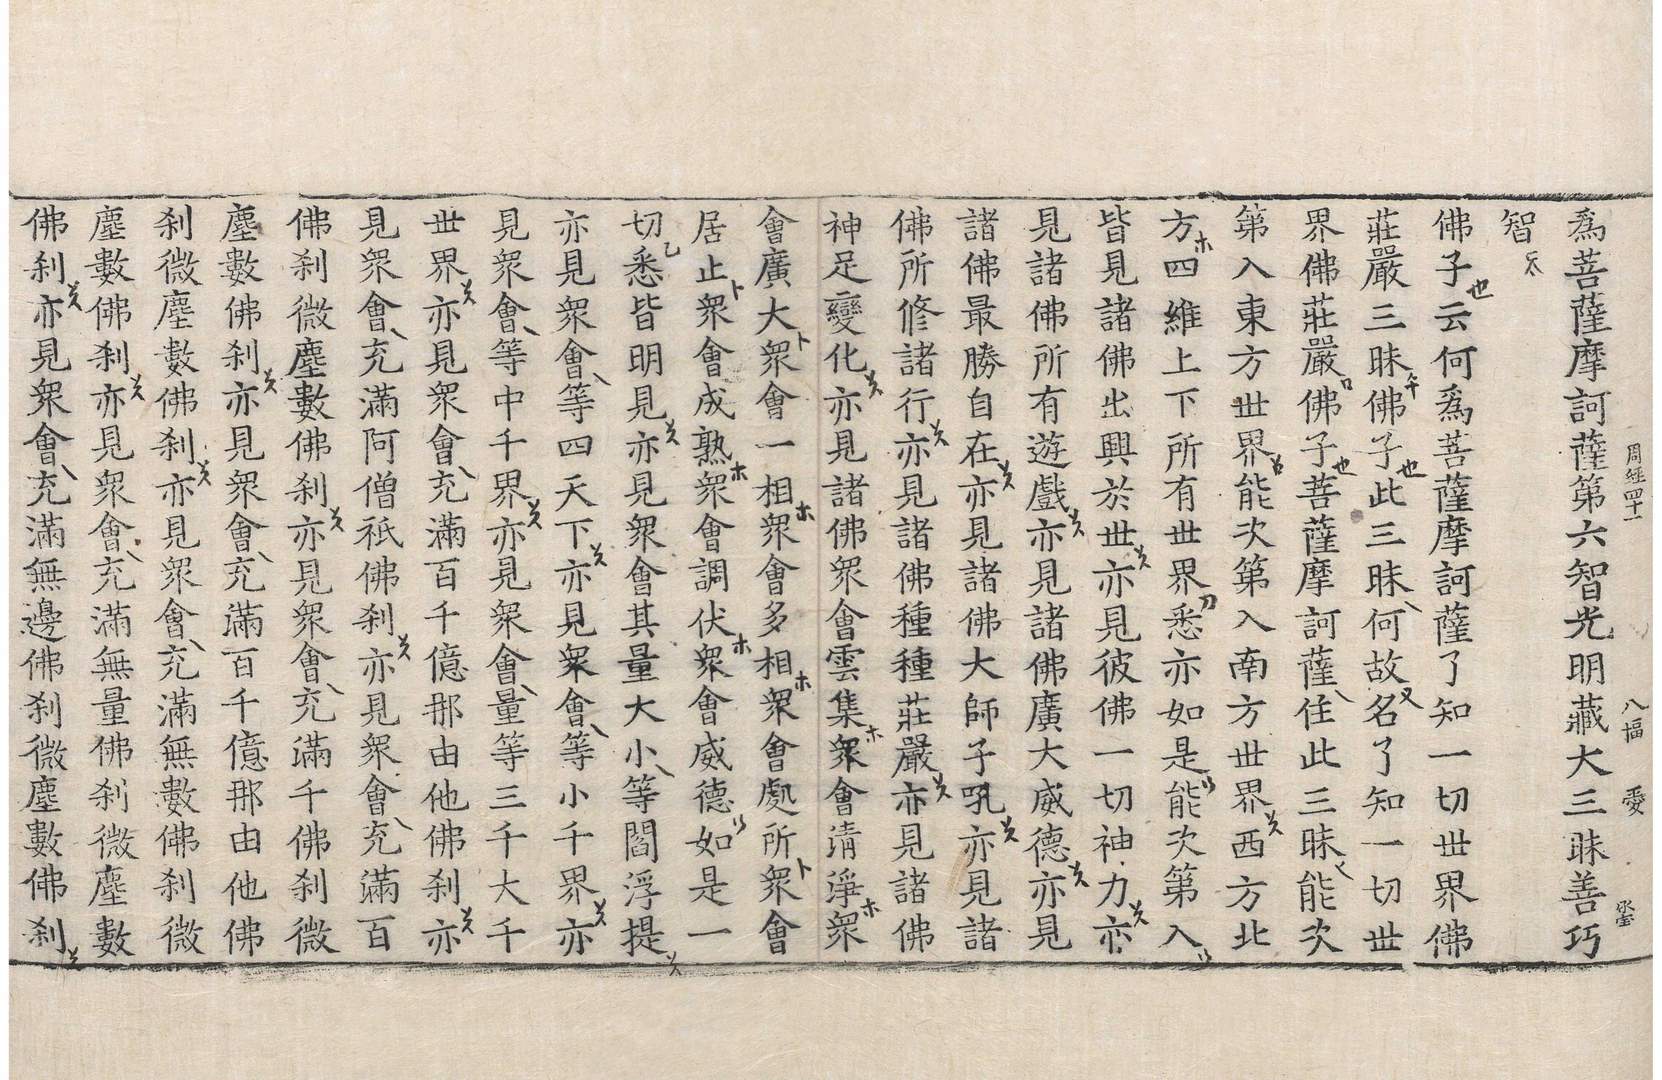 爲菩薩摩訶薩第六智光明藏大三昧善巧
智
佛子云何爲菩薩摩訶薩了知一切世界佛
莊嚴三昧佛子此三昧何故名了知一切世
界佛莊嚴佛子菩薩摩訶薩住此三昧能次
第入東方世界能次第入南方世界西方北
方四維上下所有世界悉亦如是能次第入
皆見諸佛出興於世亦見彼佛一切神力亦
見諸佛所有遊戲亦見諸佛廣大威德亦見
諸佛最勝自在亦見諸佛大師子吼亦見諸
佛所修諸行亦見諸佛種種莊嚴亦見諸佛
神足變化亦見諸佛衆會雲集衆會淸淨衆
會廣大衆會一相衆會多相衆會處所衆會
居止衆會成熟衆會調伏衆會威德如是一
切悉皆明見亦見衆會其量大小等閻浮提
亦見衆會等四天下亦見衆會等小千界亦
見衆會等中千界亦見衆會量等三千大千
世界亦見衆會充滿百千億那由他佛刹亦
見衆會充滿阿僧祇佛刹亦見衆會充滿百
佛刹微塵數佛刹亦見衆會充滿千佛刹微
塵數佛刹亦見衆會充滿百千億那由他佛
刹微塵數佛刹亦見衆會充滿無數佛刹微
塵數佛刹亦見衆會充滿無量佛刹微塵數
佛刹亦見衆會充滿無邊佛刹微塵數佛刹
周經四十一 八幅